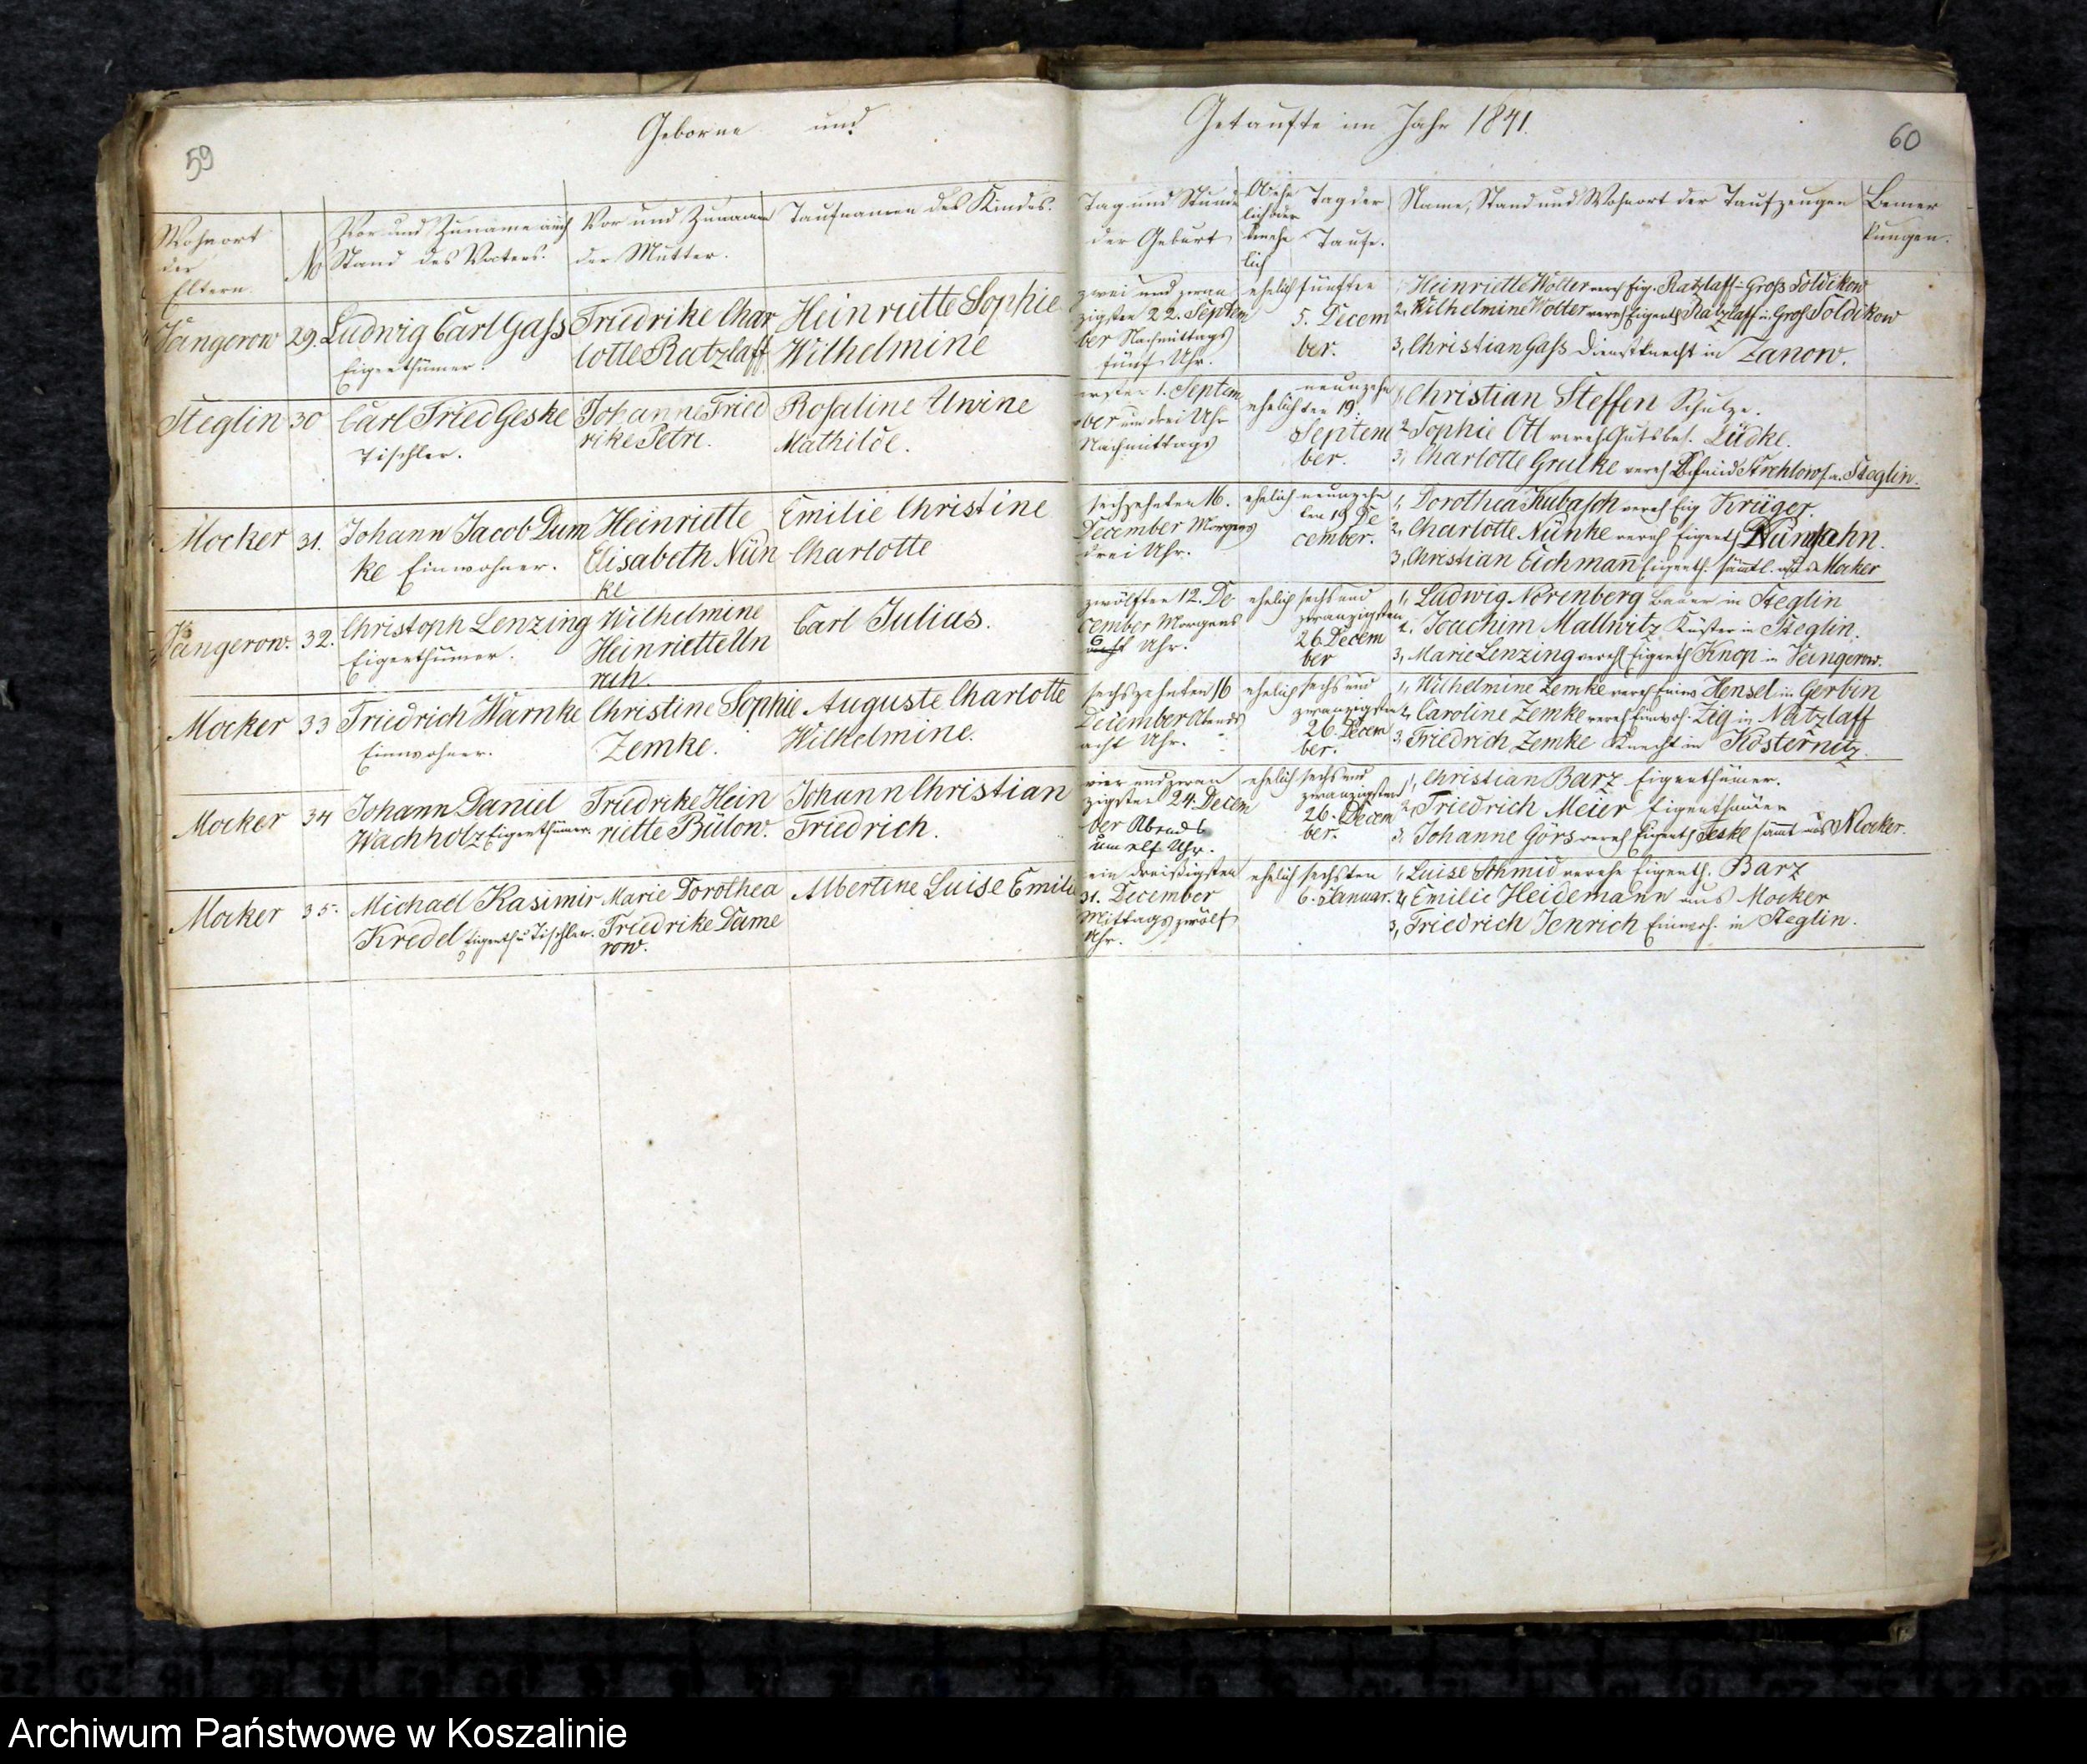 59
Geborne und
Getaufte im Jahr 1841.
60
Wohnort
der
Eltern.
No
Vor und Zuname auch
Stand des Vaters.
Vor und Zuname
der Mutter.
Taufnamen des Kindes.
Tag und Stunde
der Geburt
Ob ehe
lich oder
uneh
lich
Tag der
Taufe.
Name, Stand und Wohnort der Taufzeugen
Bemer
kungen.
Vangerow
29.
Ludwig Carl Gass
Eigenthümer.
Friedrike Char
lotte Ratzlaff
Heinriette Sophie
Wilhelmine
zwei und zwan
zigsten 22. Septem
ber Nachmittags
fünf Uhr.
ehelich
fünften
5. Decem
ber.
1, Heinriette Wolter verehl Eig. Ratzlaff in Groß Soldikow
2, Wilhelmine Wolter verehl Eigenth Ratzlaff in Groß Soldikow
3, Christian Gass Dienstknecht in Zanow.
Steglin
30
Carl Fried Geske
Tischler.
Johanne Fried
rike Petri.
Rosaline Uwine
Mathilde.
ersten 1. Septem
ber um drei Uhr
Nachmittags
ehelich
neunzehn
ten 19.
Septem
ber.
1, Christian Steffen Schulze.
2, Sophie Ott verehl. Gutsbes. Lüdke.
3, Charlotte Grulke verehl Schmid Strehlow a. Steglin.
Mocker
31.
Johann Jacob Dum
ke Einwohner.
Heinriette
Elisabeth Nün
ke
Emilie Christine
Charlotte
sechzehnten 16.
December Morgens
drei Uhr.
ehelich
neunzehn
ten 19 De
cember.
1, Dorothea Kubasch verehl Eig Krüger.
2, Charlotte Nünke verehl Eigenth
3, Christian Eichmann Eigenth. sämtl. aus Mocker
Vangerow.
32.
Christoph Lenzing
Eigenthümer.
Wilhelmine
Heinriette Un
ruh
Carl Julius.
zwölften 12. De
cember Morgens
6 Uhr.
ehelich
sechs und
zwanzigsten
26 Decem
ber
1, Ludwig Nörenberg Bauer in Steglin
2, Joachim Mallwitz Küster in Steglin.
3, Marie Lenzing verehl Eigenth Knop in Vangerow.
Mocker
33
Friedrich Warnke
Einwohner.
Christine Sophie
Zemke.
Auguste Charlotte
Wilhelmine.
sechszehnten 16
December Abends
acht Uhr.
ehelich
sechs und
zwanzigsten
26. Decem
ber.
1, Wilhelmine Zemke verehl Einw Hensel in Gerbin
2, Caroline Zemke verehl Einwoh. Zig in Natzlaff
3, Friedrich Zemke Knecht in Kösternitz.
Mocker
34
Johann Daniel
Wachholz Eigenthümer.
Friedrike Hein
riette Bülow.
Johann Christian
Friedrich.
vier und zwan
zigsten 24. Decem
ber Abends
um elf Uhr.
ehelich
sechs und
zwanzigsten
26. Decem
ber.
1, Christian Barz Eigenthümer.
2, Friedrich Meier Eigenthümer
3, Johanne Görs verehl Eigenth Teske sämt aus Mocker.
Mocker
35.
Michael Kasimir
Kredel Eigenth u Tischler.
Marie Dorothea
Friedrike Dame
row.
Albertine Luise Emilie
ein dreißigsten
31. December
Mittags zwölf
Uhr.
ehelich
sechsten
6. Januar.
1, Luise Schmid verehe Eigenth. Barz
2, Emilie Heidemann aus Mocker
3, Friedrich Jenrich Einwoh. in Steglin.
Archiwum Państwowe w Koszalinie